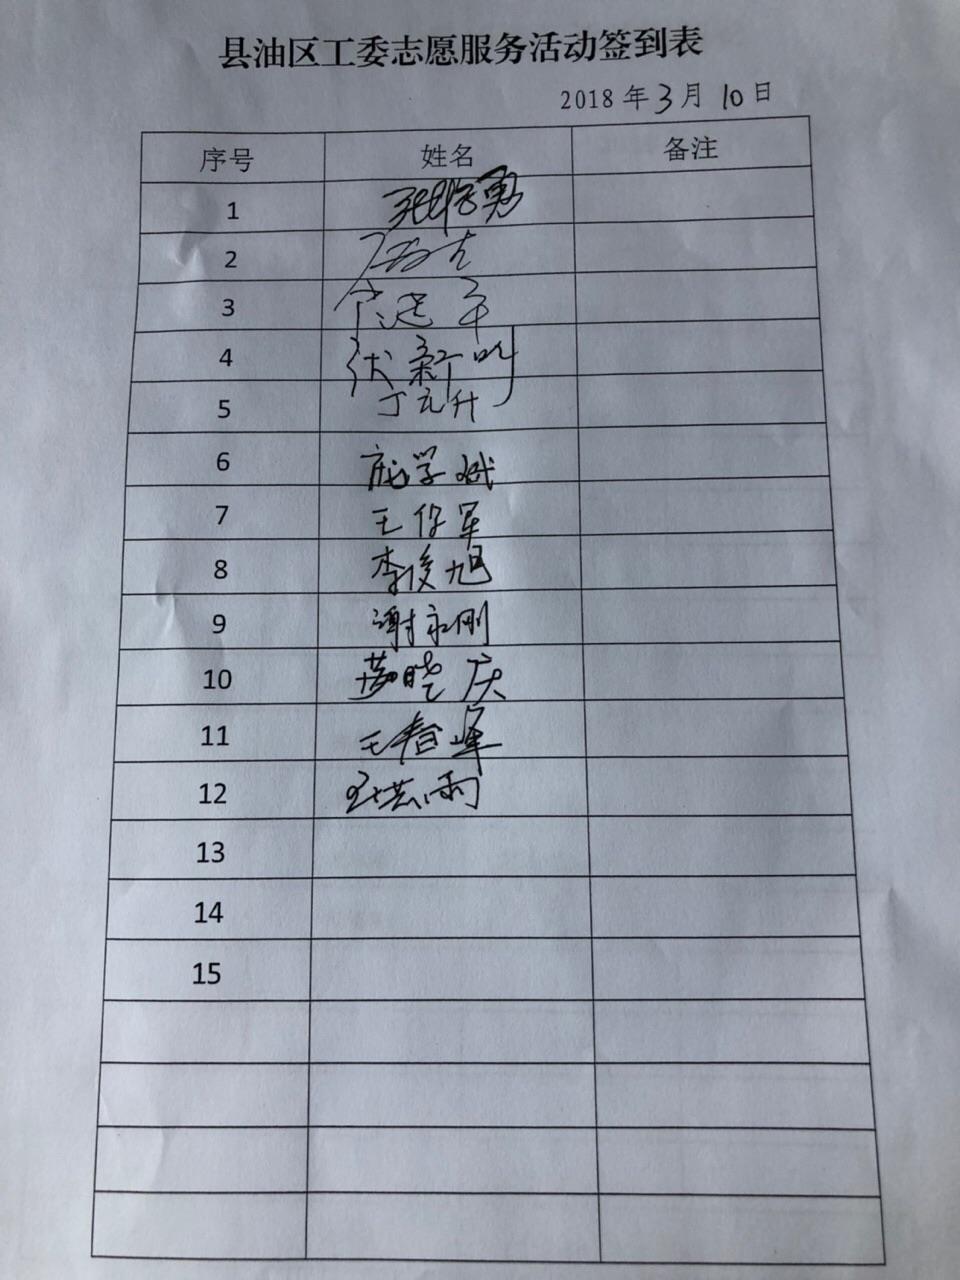 县油区工委志愿服务活动签到表
2018年3月10日
序号 姓名 备注
1
2
3
4
5 丁元升
6 庞学斌
7 王保军
8 李俊旭
9 谢永刚
10 晓庆
11 王春峰
12 雨
13
14
15